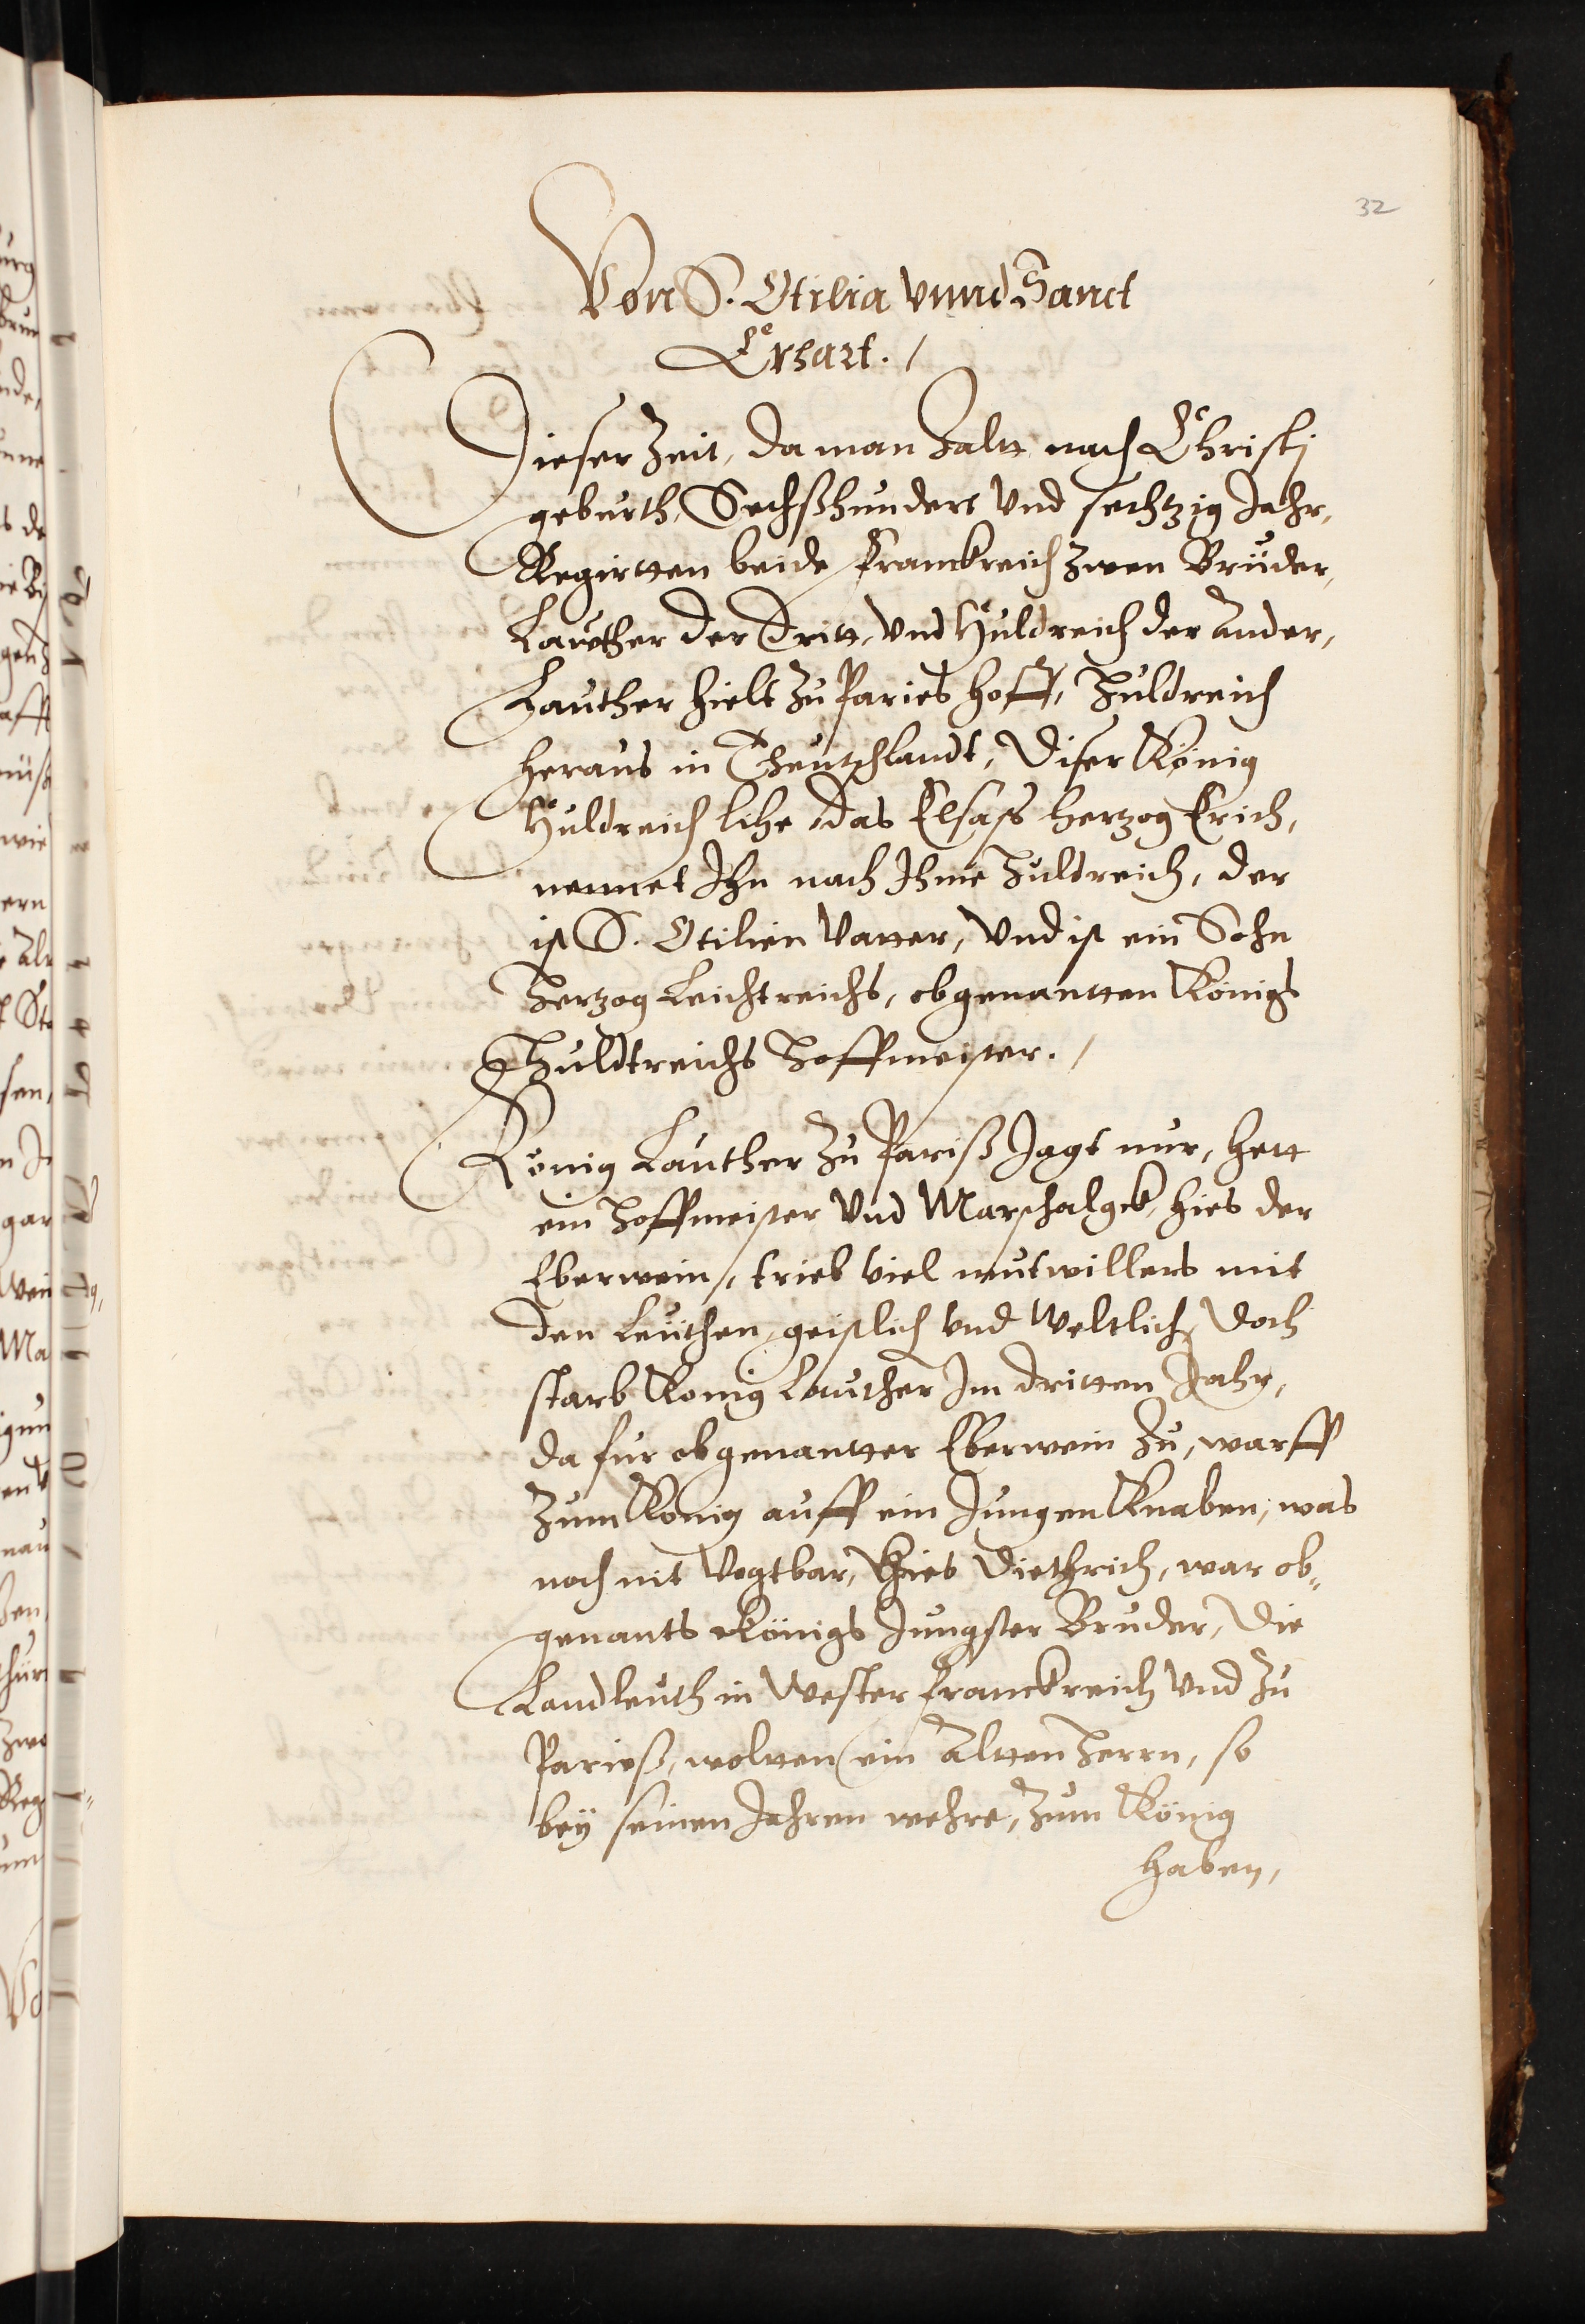 32
Von S. Otilia vnnd Sanct
Erhart. /
Dieser Zeit, da man Zaltt nach Christj
geburth, Sechßhundert Vnd sechtzig Jahr,
Regirtten beide Franckreich zwen Brüder,
Lauther der Dritt, Vnd Huldreich der Ander,
Lauther hielt zu Paries hoff, Huldreich
heraus in Theutschlandt, Diser König
Huldreich lihe das Elsass hertzog Erich,
nennet Ihn nach Ihme Huldreich, der
ist S. Otilien Vatter, Vnd ist ein Sohn
Hertzog Leichtreichs, obgenantten Königs
Huldtreichs Hoffmeister. /
König Lauther zu Pariß Jagt nur, hett
ein Hoffmeister Vnd Marschalgck, hies der
Eberwein, trieb Viel mutwillens mit
den Leuthen, geistlich vnd Weltlich, Doch
starb König Lauther Im dritten Jahr,
da fur obgenantter Eberwein zu, warff
Zum König auff ein Jungen Knaben, was
noch nit Vogtbar, Hies Diethrich, war ob„
genants Königs Jungster Bruder, Die
Landleuth in Wester Franckreich Vnd zu
Parieß, woltten ein Altten Herrn, so
bey seinen Jahren wehre, zum König
haben,